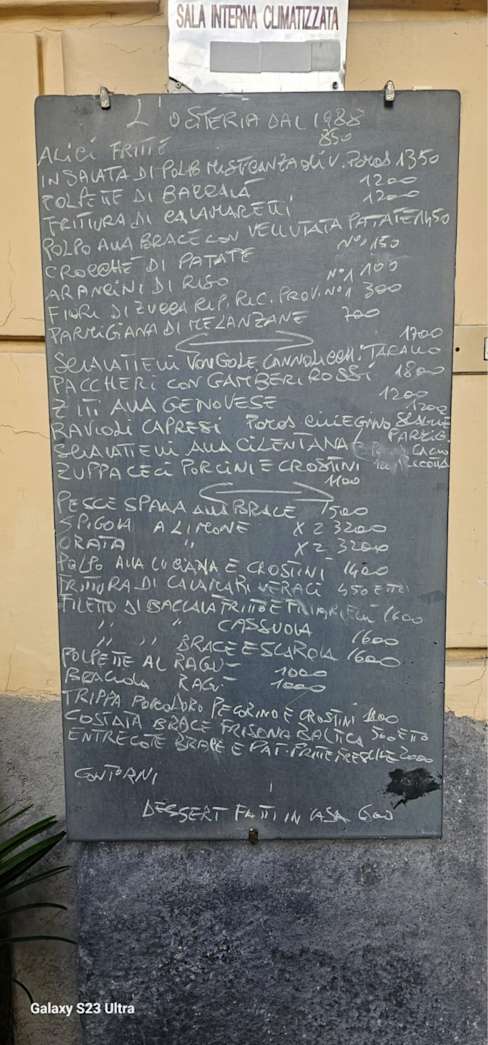 SALA INTERNA CLIMATIZZATA
L'OSTERIA DAL 1988
ALICI FRITTE 850
INSALATA DI POLPO MISTICANZA OLIV. POMOD 1350
POLPETTE DI BACCALÀ 1200
FRITTURA DI CALAMARETTI 1200
POLPO ALLA BRACE CON VELLUTATA PATATE 1450
CROCCHÈ DI PATATE N°1 150
ARANCINI DI RISO N°1 100
FIORI DI ZUCCA RIP. RIC. PROV. N°1 300
PARMIGIANA DI MELANZANE 700
SCIALATIELLI VONGOLE CANNOLICCHI TARALLO 1700
PACCHERI CON GAMBERI ROSSI 1800
ZITI ALLA GENOVESE 1200
RAVIOLI CAPRESI POMOD CILIEGINO SCAGLIE PARMIG. 1200
SCIALATIELLI ALLA CILENTANA CACIO RICOTTA
ZUPPA CECI PORCINI E CROSTINI 1100
PESCE SPADA ALLA BRACE 1500
SPIGOLA A LIMONE X 2 3200
ORATA " X 2 3200
POLPO ALLA LUCIANA E CROSTINI 1400
FRITTURA DI CALAMARI VERACI 450 ETTO
FILETTO DI BACCALÀ FRITTO E FRIARIELLI 1600
" " CASSUOLA 1600
" " " BRACE E SCAROLA 1600
POLPETTE AL RAGÙ 1000
BRACIOLA RAGÙ 1000
TRIPPA POMODORO PECORINO E CROSTINI
COSTATA BRACE FRISONA BALTICA 500 ETTO
ENTRECOTE BRACE E PAT. FRITTE FRESCHE 2000
CONTORNI
DESSERT FATTI IN CASA 600
Galaxy S23 Ultra